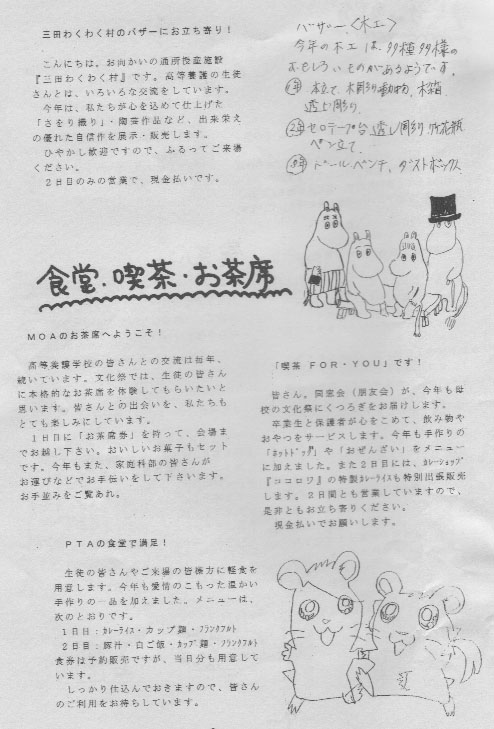 三田わくわく村のバザーにお立ち寄り！
こんにちは。お向かいの通所授産施設
『三田わくわく村』です。高等養護の生徒
さんとは、いろいろな交流をしています。
今年は、私たちが心を込めて仕上げた
「さをり織り」・陶芸作品など、出来栄え
の優れた自信作を展示・販売します。
ひやかし歓迎ですので、ふるってご来場
ください。
２日目のみの営業で、現金払いです。
バザー〈木工〉
今年の木工は、多種多様の
おもしろいものがあるようです。
1年 本立て、木彫り動物、木箱
透し彫り、
2年 セロテープ台 透し彫り 花瓶
ペン立て、
3年 ドール、ベンチ、ダストボックス
食堂・喫茶・お茶席
ＭＯＡのお茶席へようこそ！
高等養護学校の皆さんとの交流は毎年、
続いています。文化祭では、生徒の皆さん
に本格的なお茶席を体験してもらいたいと
思います。皆さんとの出会いを、私たちも
とても楽しみにしています。
１日目に「お茶席券」を持って、会場ま
でお越し下さい。おいしいお菓子もセット
です。今年もまた、家庭科部の皆さんが
お運びなどでお手伝いをして下さいます。
お手並みをご覧あれ。
「喫茶 ＦＯＲ・ＹＯＵ」です！
皆さん。同窓会（朋友会）が、今年も母
校の文化祭にくつろぎをお届けします。
卒業生と保護者が心をこめて、飲み物や
おやつをサービスします。今年も手作りの
「ホットドッグ」や「おぜんざい」をメニュー
に加えました。また２日目には、カレーショップ
『ココロワ』の特製カレーライスも特別出張販売
します。２日間とも営業していますので、
是非ともお立ち寄りください。
現金払いでお願いします。
ＰＴＡの食堂で満足！
生徒の皆さんやご来場の皆様方に軽食を
用意します。今年も愛情のこもった温かい
手作りの一品を加えました。メニューは、
次のとおりです。
１日目：カレーライス・カップ麺・フランクフルト
２日目：豚汁・白ご飯・カップ麺・フランクフルト
食券は予約販売ですが、当日分も用意して
います。
しっかり仕込んでおきますので、皆さん
のご利用をお待ちしています。